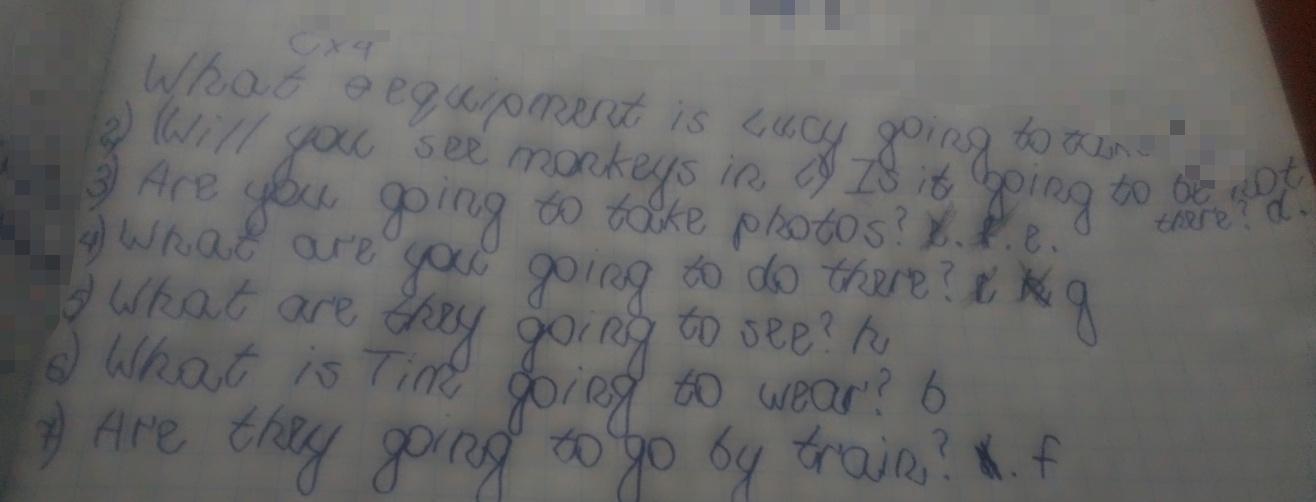 What equipment is Lucy going to
2) Will you see monkeys in Is it going to be
there? d.
3) Are you going to take photos? e.
4) What are you going to do there? g
5) What are they going to see? h
6) What is Tim going to wear? b
7) Are they going to go by train? f